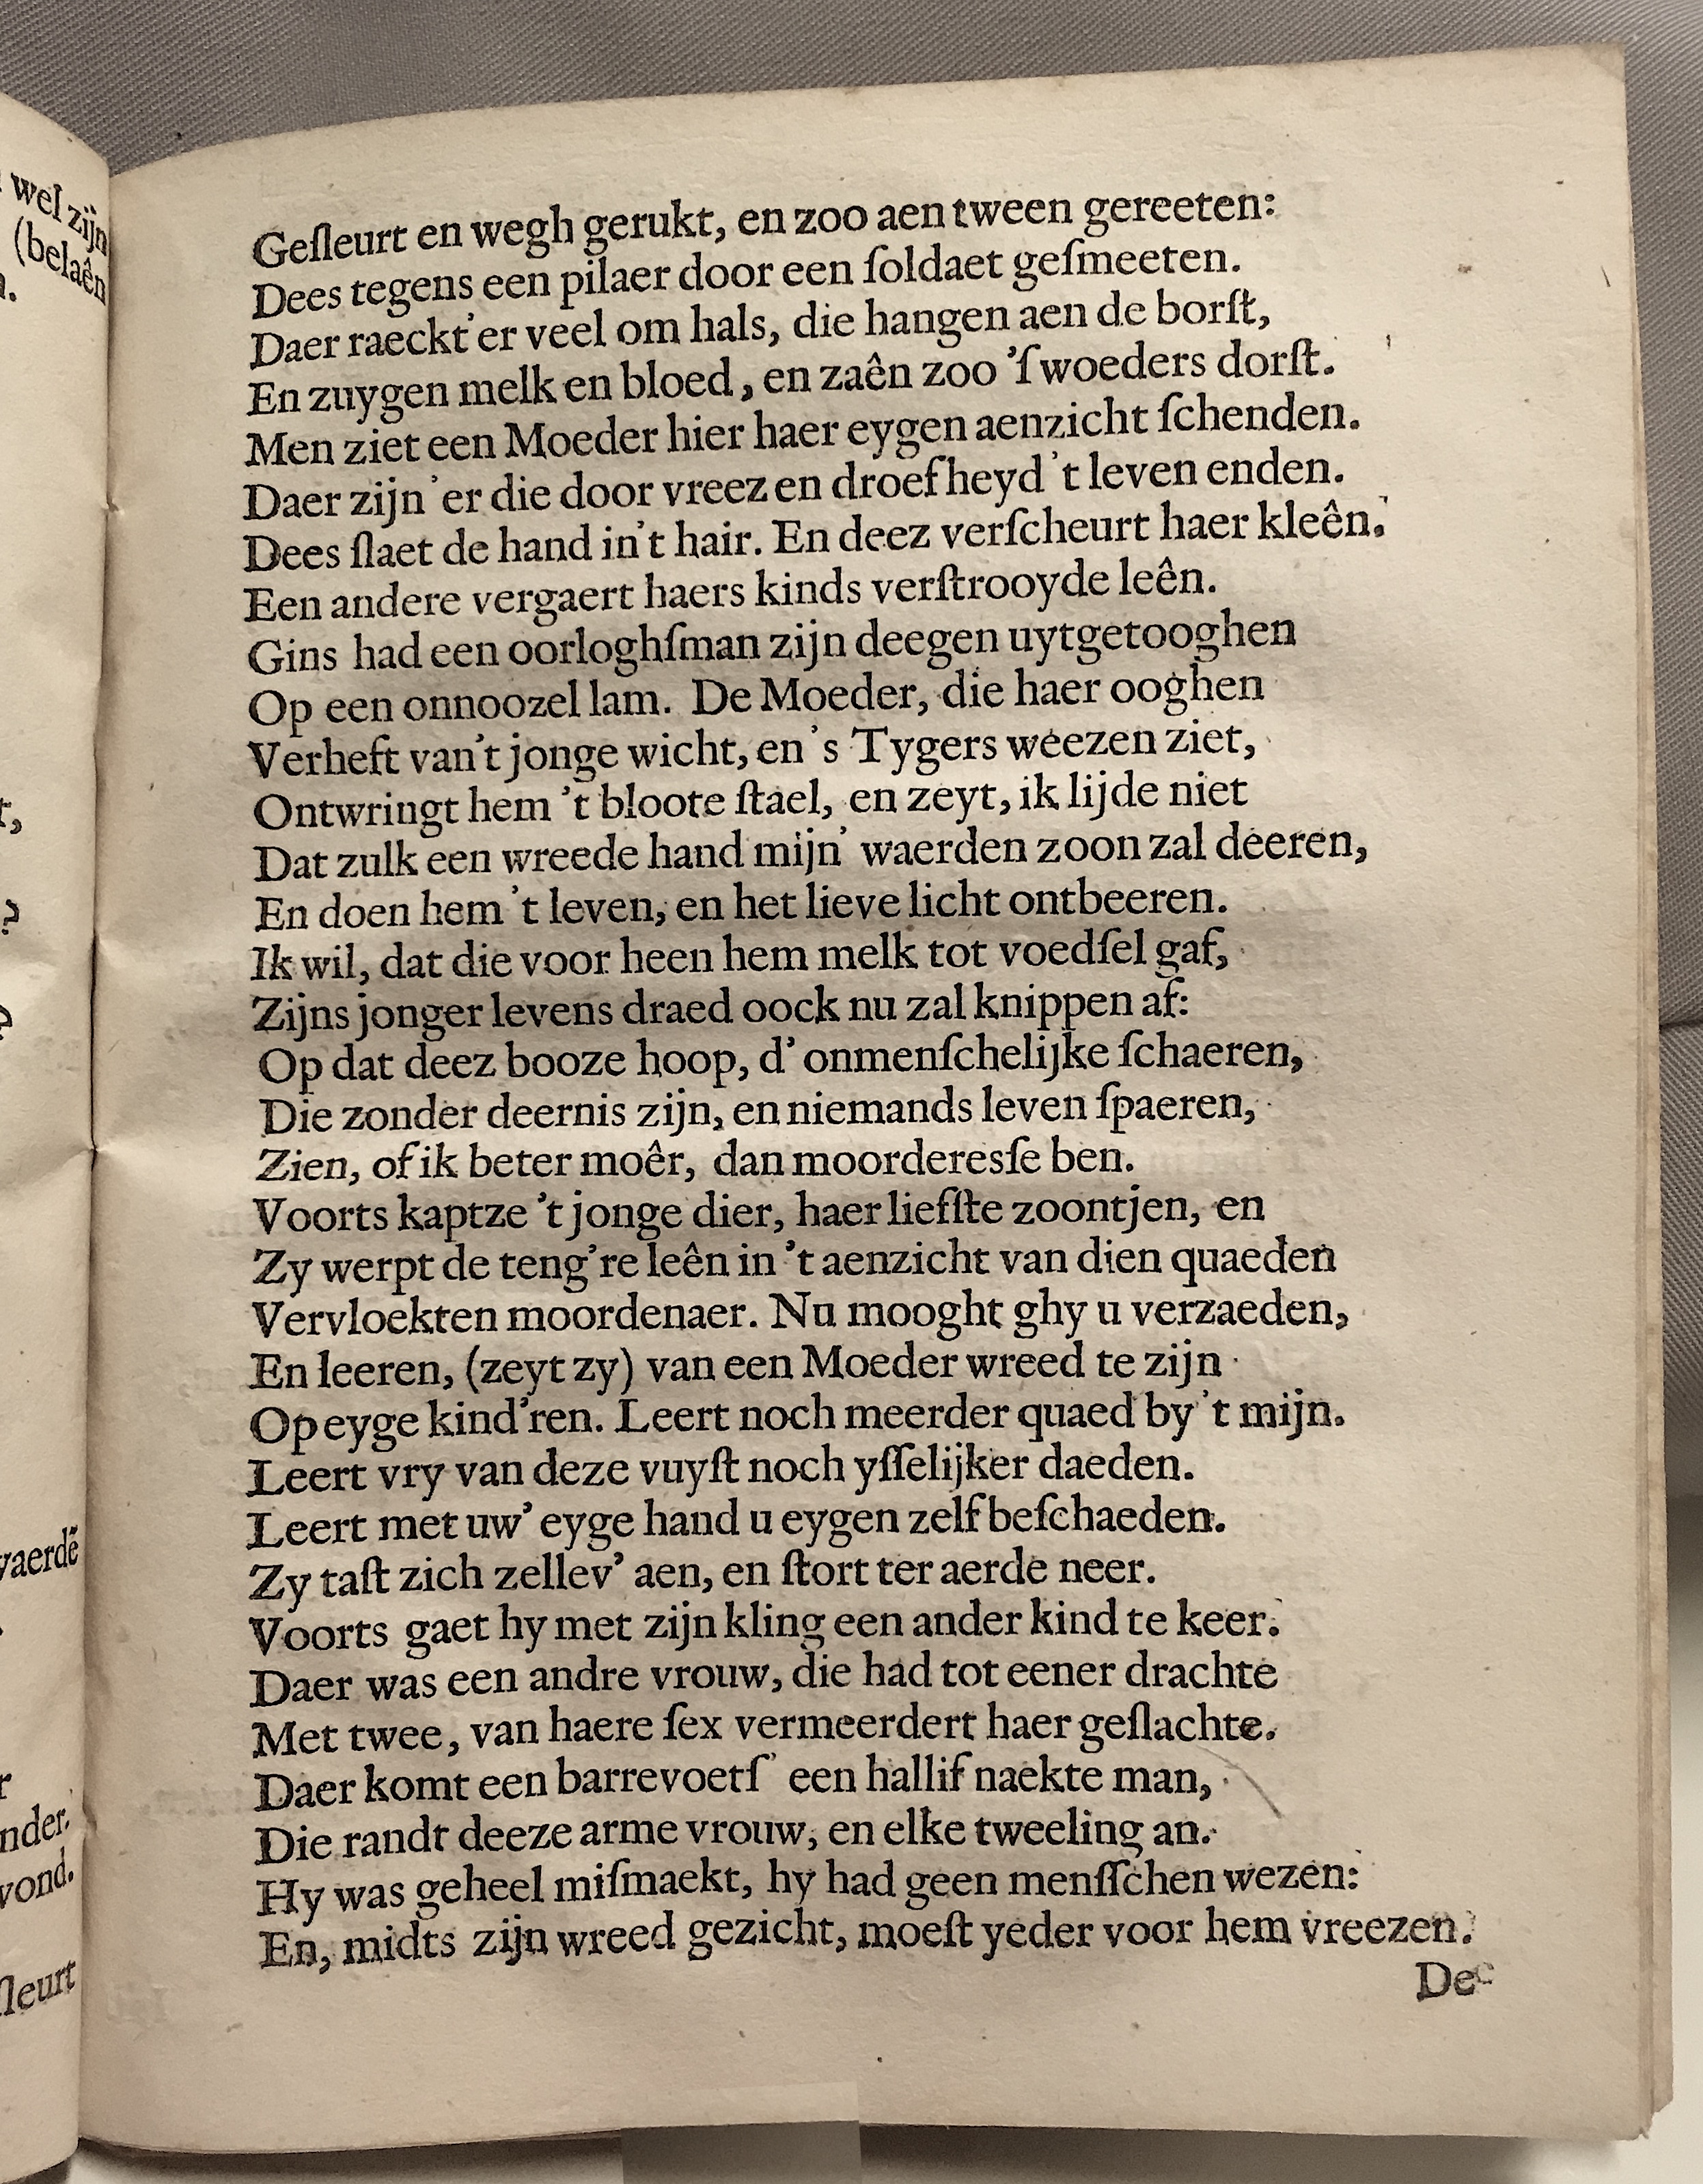 wel zijn
(belaên
Geſleurt en wegh gerukt, en zoo aen tween gereeten:
Dees tegens een pilaer door een ſoldaet geſmeeten.
Daer raeckt'er veel om hals, die hangen aen de borſt,
En zuygen melk en bloed, en zaên zoo 'ſ woeders dorſt.
Men ziet een Moeder hier haer eygen aenzicht ſchenden.
Daer zijn'er die door vreez en droefheyd 't leven enden.
Dees ſlaet de hand in't hair. En deez verſcheurt haer kleên.
Een andere vergaert haers kinds verſtrooyde leên.
Gins had een oorloghſman zijn deegen uytgetooghen
Op een onnoozel lam. De Moeder, die haer ooghen
Verheft van't jonge wicht, en 's Tygers weezen ziet,
Ontwringt hem 't bloote ſtael, en zeyt, ik lijde niet
Dat zulk een wreede hand mijn' waerden zoon zal deeren,
En doen hem 't leven, en het lieve licht ontbeeren.
Ik wil, dat die voor heen hem melk tot voedſel gaf,
Zijns jonger levens draed oock nu zal knippen af:
Op dat deez booze hoop, d' onmenſchelijke ſchaeren,
Die zonder deernis zijn, en niemands leven ſpaeren,
Zien, of ik beter moêr, dan moorderesſe ben.
Voorts kaptze 't jonge dier, haer liefſte zoontjen, en
Zy werpt de teng're leên in 't aenzicht van dien quaeden
Vervloekten moordenaer. Nu mooght ghy u verzaeden,
En leeren, (zeyt zy) van een Moeder wreed te zijn
Op eyge kind'ren. Leert noch meerder quaed by 't mijn.
Leert vry van deze vuyſt noch yſſelijker daeden.
Leert met uw' eyge hand u eygen zelf beſchaeden.
Zy taſt zich zellev' aen, en ſtort ter aerde neer.
Voorts gaet hy met zijn kling een ander kind te keer.
Daer was een andre vrouw, die had tot eener drachte
Met twee, van haere ſex vermeerdert haer geſlachte.
Daer komt een barrevoetſ' een hallif naekte man,
Die randt deeze arme vrouw, en elke tweeling an.
Hy was geheel miſmaekt, hy had geen menſſchen wezen:
En, midts zijn wreed gezicht, moeſt yeder voor hem vreezen.
Dee